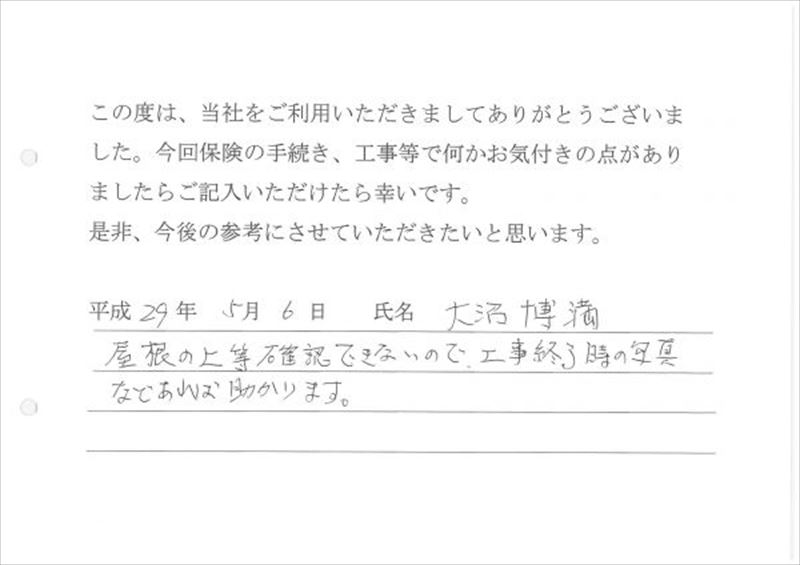 この度は、当社をご利用いただきましてありがとうございま
した。今回保険の手続き、工事等で何かお気付きの点があり
ましたらご記入いただけたら幸いです。
是非、今後の参考にさせていただきたいと思います。
平成 29 年 5月 6 日 氏名 大沼 博満
屋根の上等確認できないので、工事終了時の写真
などあれば助かります。